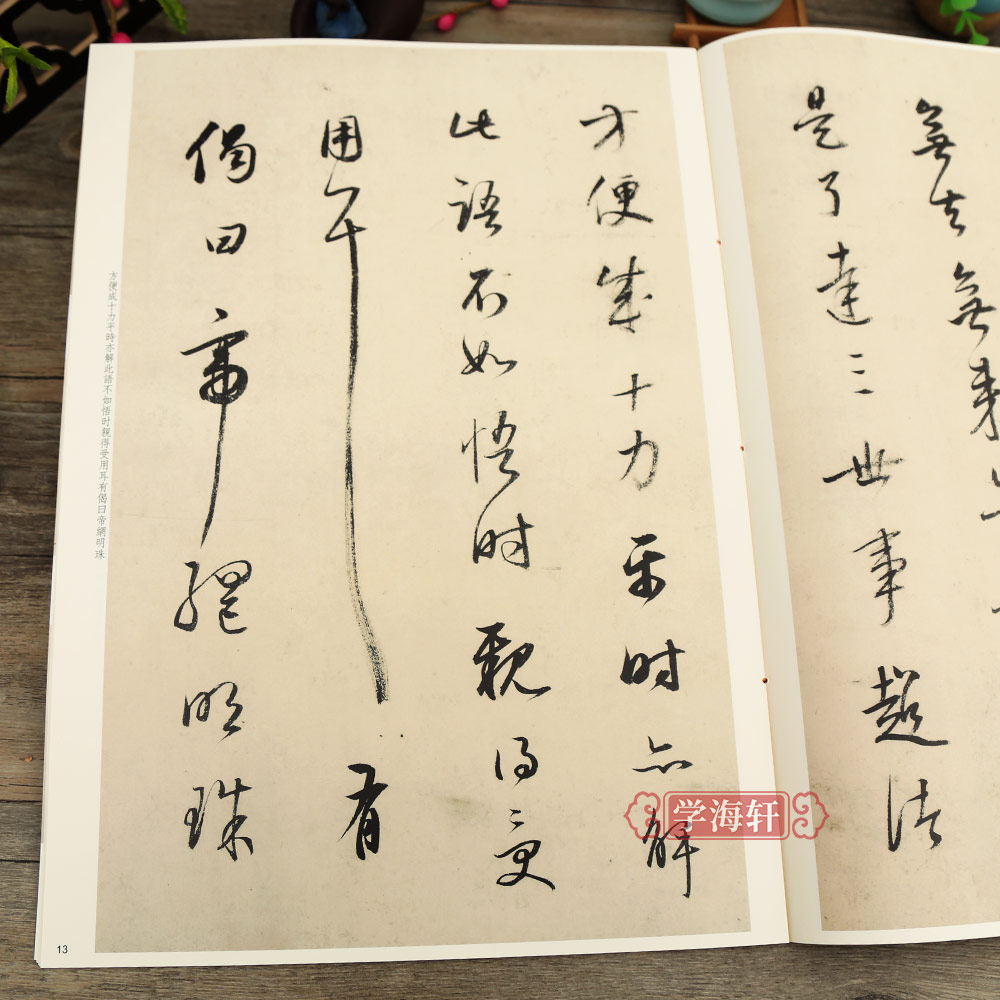 無去無来
是了達三世事超諸
方便成十力平时亦解
此語不如悟时親得受
用耳有
偈曰帝網明珠
方便成十力平時亦解此語不如悟时親得受用耳有偈曰帝網明珠
13
学海轩